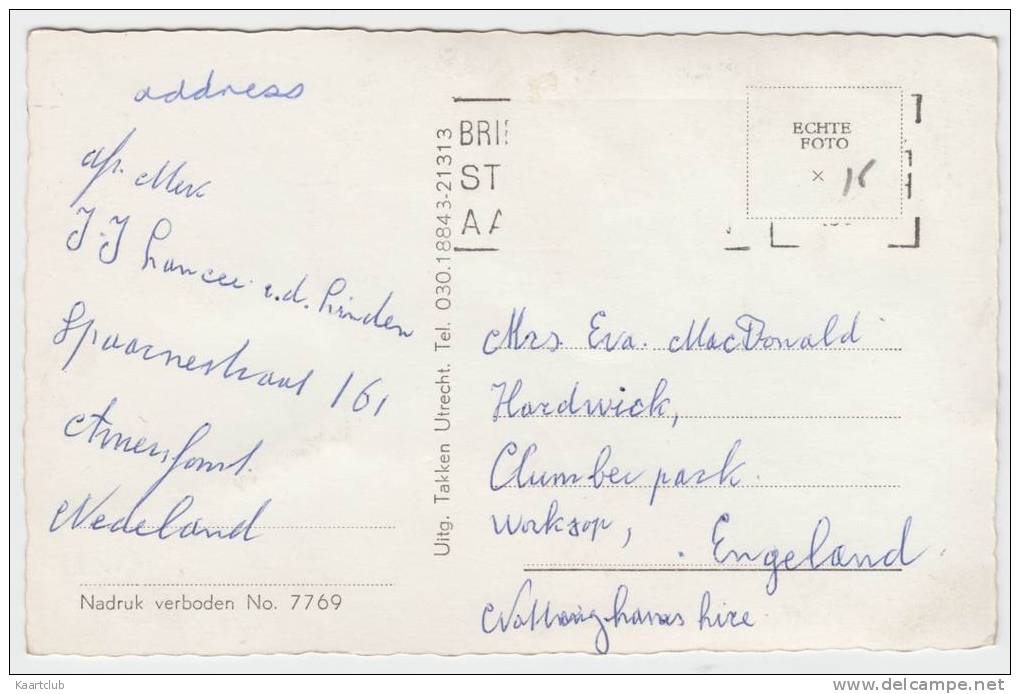 address
afz. Mevr
J.J Lancee v.d. Linden
Spaarnestraat 161
Amersfoort.
Nedeland
Nadruk verboden No. 7769
Uitg. Takken Utrecht. Tel. 030.18843-21313
ECHTE
FOTO
× 16
Mrs. Eva. MacDonald
Hardwick,
Clumber park.
Worksop,
Engeland
Nottinghamshire.
Kaartclub
delcampe.net